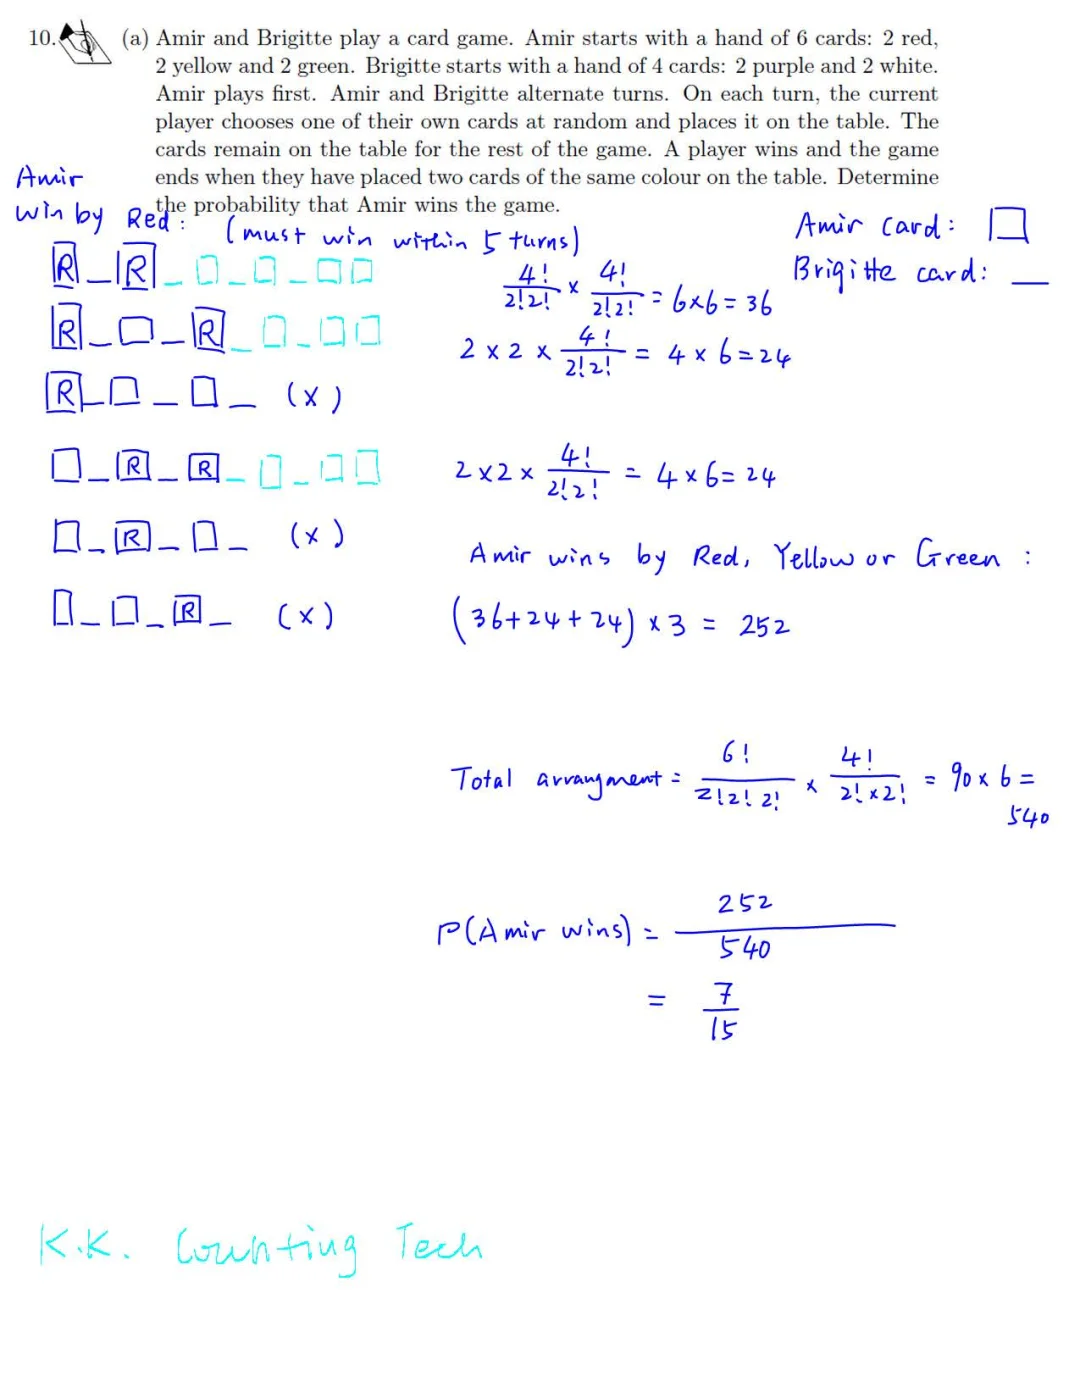 10. (a) Amir and Brigitte play a card game. Amir starts with a hand of 6 cards: 2 red,
2 yellow and 2 green. Brigitte starts with a hand of 4 cards: 2 purple and 2 white.
Amir plays first. Amir and Brigitte alternate turns. On each turn, the current
player chooses one of their own cards at random and places it on the table. The
cards remain on the table for the rest of the game. A player wins and the game
ends when they have placed two cards of the same colour on the table. Determine
the probability that Amir wins the game.
Amir
win by Red :
(must win within 5 turns)
Amir card: □
Brigitte card: _
R _ R _ □ _ □ _ □ □
4!/2!2! × 4!/2!2! = 6×6 = 36
R _ □ _ R _ □ _ □ □
2 × 2 × 4!/2!2! = 4 × 6 = 24
R _ □ _ □ _ (×)
□ _ R _ R _ □ _ □ □
2 × 2 × 4!/2!2! = 4 × 6 = 24
□ _ R _ □ _ (×)
Amir wins by Red, Yellow or Green :
□ _ □ _ R _ (×)
(36+24+24) × 3 = 252
Total arrangment = 6!/2!2!2! × 4!/2!×2! = 90 × 6 =
540
P(Amir wins) = 252/540
= 7/15
K.K. Counting Tech